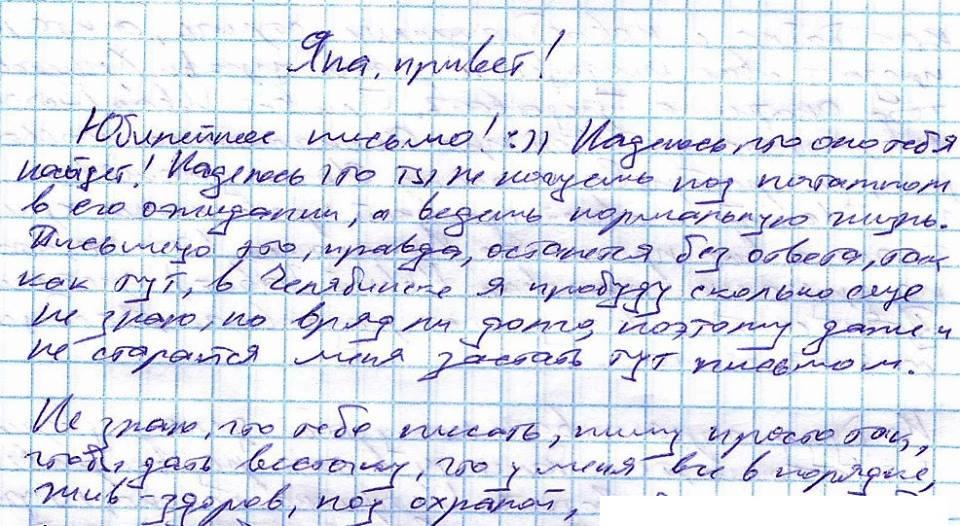 Яна, привет!
Юбилейное письмо! :)) Надеюсь, что оно тебя
найдет! Надеюсь что ты не ночуешь под почтатом
в его ожидании, а ведешь нормальную жизнь.
Письмецо это, правда, останется без ответа, так
как тут, в Челябинске я пробуду сколько еще
не знаю, но вряд ли долго, поэтому даже и
не старайся меня застать тут письмом.
Не знаю, что тебе писать, пишу просто так,
чтобы дать весточку, что у меня все в порядке,
жив-здоров, под охраной,